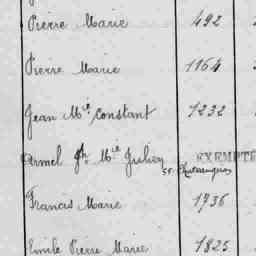 Pierre Marie 492
Pierre Marie 1164
Jean Mie Constant 1232
Armel Jh Mie Julien EXEMPTÉ
Francis Marie 1736
Emile Pierre Marie 1825